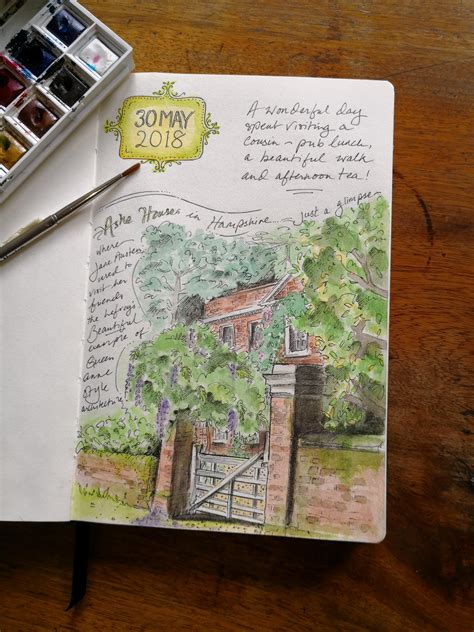 30 MAY
2018
A wonderful day
spent visiting a
cousin ~ pub lunch,
a beautiful walk
and afternoon tea!
Ashe House in Hampshire... just a glimpse
where
Jane Austen
used to
visit her
friends
the Lefroys
Beautiful
example of
Queen
Anne
Style
architecture